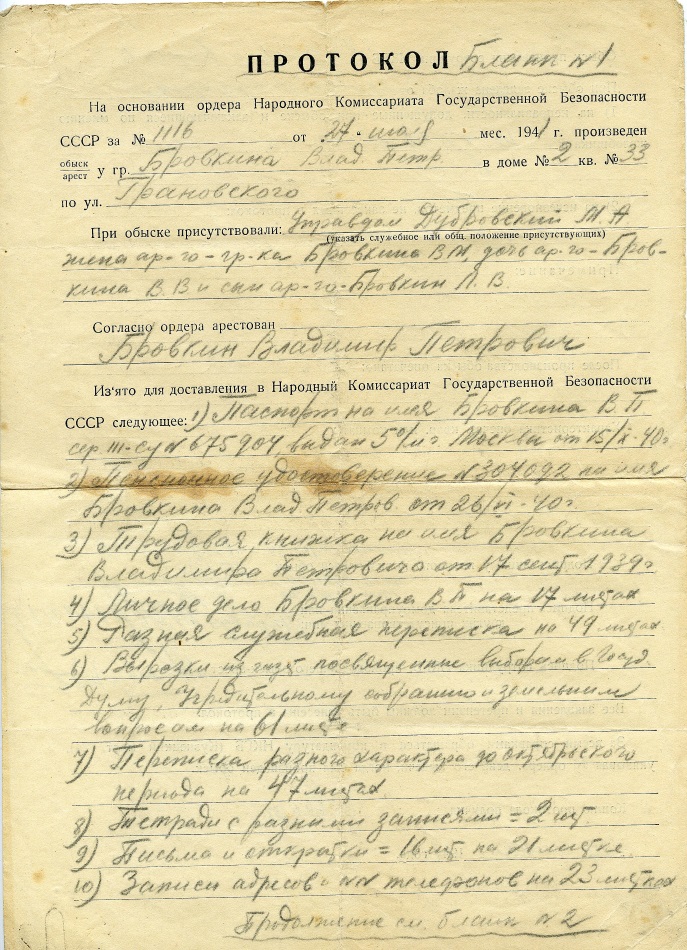 ПРОТОКОЛ Бланк №1
На основании ордера Народного Комиссариата Государственной Безопасности
СССР за № 1116 от 27 июля мес. 1941 г. произведен
обыск
арест у гр. Бровкина Влад. Петр. в доме № 2 кв. № 33
по ул. Грановского
При обыске присутствовали: Управдом Дубровский М. А
(указать служебное или общ. положение присутствующих)
жена ар-го-гр-ка Бровкина В. М, дочь ар-го-Бров-
кина В. В. и сын ар-го-Бровкин Л. В.
Согласно ордера арестован
Бровкин Владимир Петрович
Из'ято для доставления в Народный Комиссариат Государственной Безопасности
СССР следующее: 1) Паспорт на имя Бровкина В. П
сер III-СУ № 675904, выдан 5 о/м г Москвы от 15/X-40г
2) Пенсионное удостоверение № 304092 на имя
Бровкина Влад Петров. от 26/VI-40г
3) Трудовая книжка на имя Бровкина
Владимира Петровича от 17 сент 1939г
4) Личное дело Бровкина В. П на 17 листах
5) Разная служебная переписка на 49 листах
6) Вырезки из газет посвященные выборам в Госуд.
Думу, Учредительному собранию и земельным
вопросам на 61 листе
7) Переписка разного характера до октябрьского
периода на 47 листах
8) Тетради с разными записями = 2 шт
9) Письма и открытки = 16 шт на 21 листке
10) Записи адресов и №№ телефонов на 23 листках
Продолжение см. бланк №2